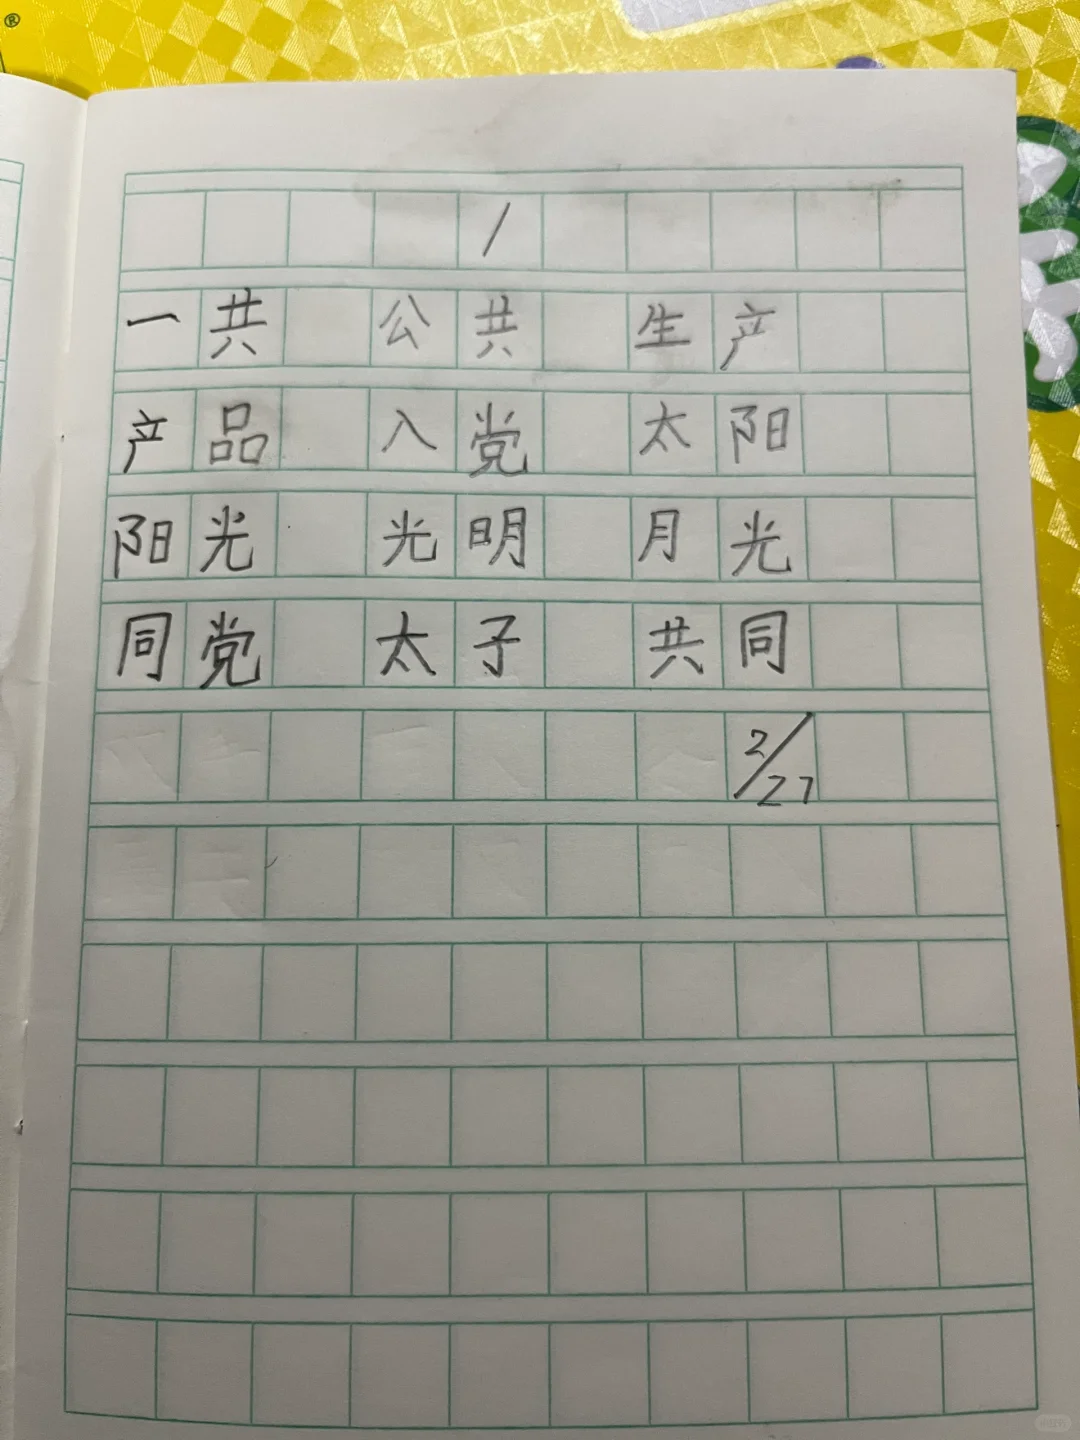 ®
1
一共 公共 生产
产品 入党 太阳
阳光 光明 月光
同党 太子 共同
2/27